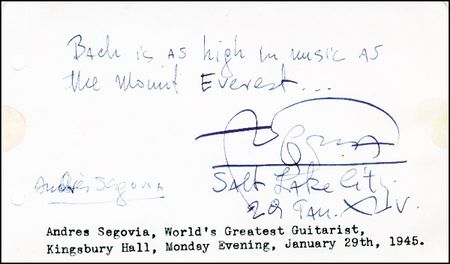 Bach is as high in music as
the Mount Everest...
Segovia
Andrés Segovia
Salt Lake City
29 Jan. XLV.
Andres Segovia, World's Greatest Guitarist,
Kingsbury Hall, Monday Evening, January 29th, 1945.